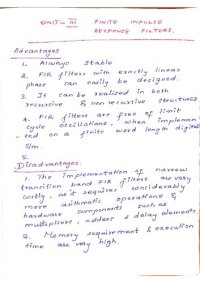 UNIT - III FINITE IMPULSE
RESPONSE FILTERS.
Advantages
1. Always stable
2. FIR filters with exactly linear
phase can easily be designed.
3. It can be realized in both
recursive & non recursive structures.
4. FIR filters are free of limit
cycle oscillations, when implemen
- ted on a finite word length digital
s/m.
5.
Disadvantages:
1. The implementation of narrow
transition band FIR filters are very
costly, as it requires considerably
more arithmetic operations &
hardware components such as
multipliers, adders & delay elements.
2. Memory requirement & execution
time are very high.